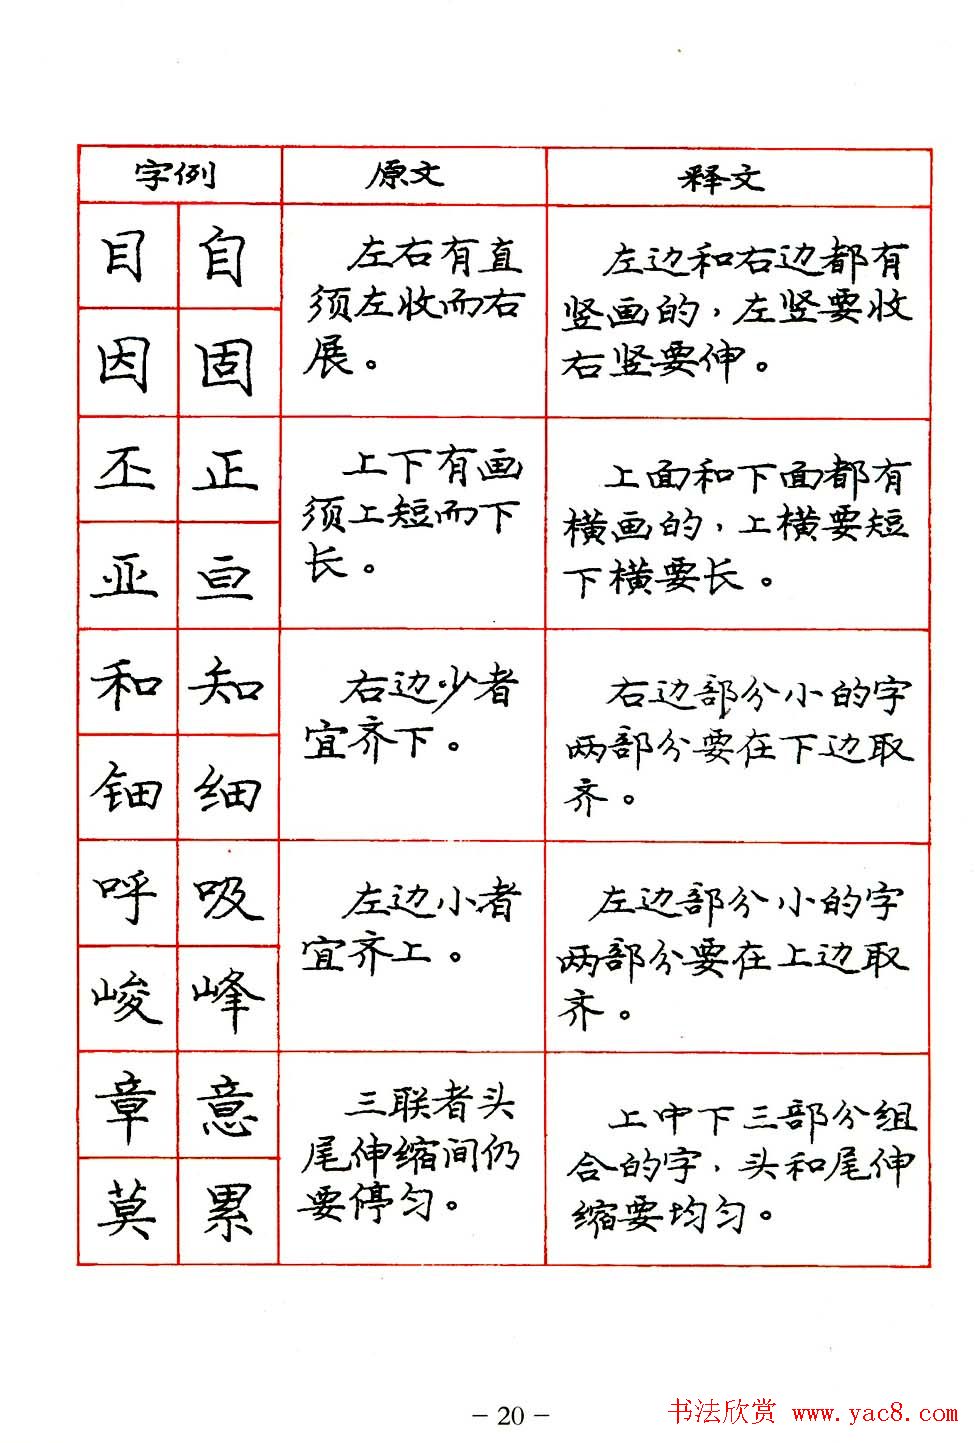 字例 原文 释文
目 自
因 固
左右有直
须左收而右
展。
左边和右边都有
竖画的，左竖要收
右竖要伸。
丕 正
亚 亘
上下有画
须上短而下
长。
上面和下面都有
横画的，上横要短
下横要长。
和 知
钿 细
右边少者
宜齐下。
右边部分小的字
两部分要在下边取
齐。
呼 吸
峻 峰
左边小者
宜齐上。
左边部分小的字
两部分要在上边取
齐。
章 意
莫 累
三联者头
尾伸缩间仍
要停匀。
上中下三部分组
合的字，头和尾伸
缩要均匀。
- 20 -
书法欣赏 www.yac8.com